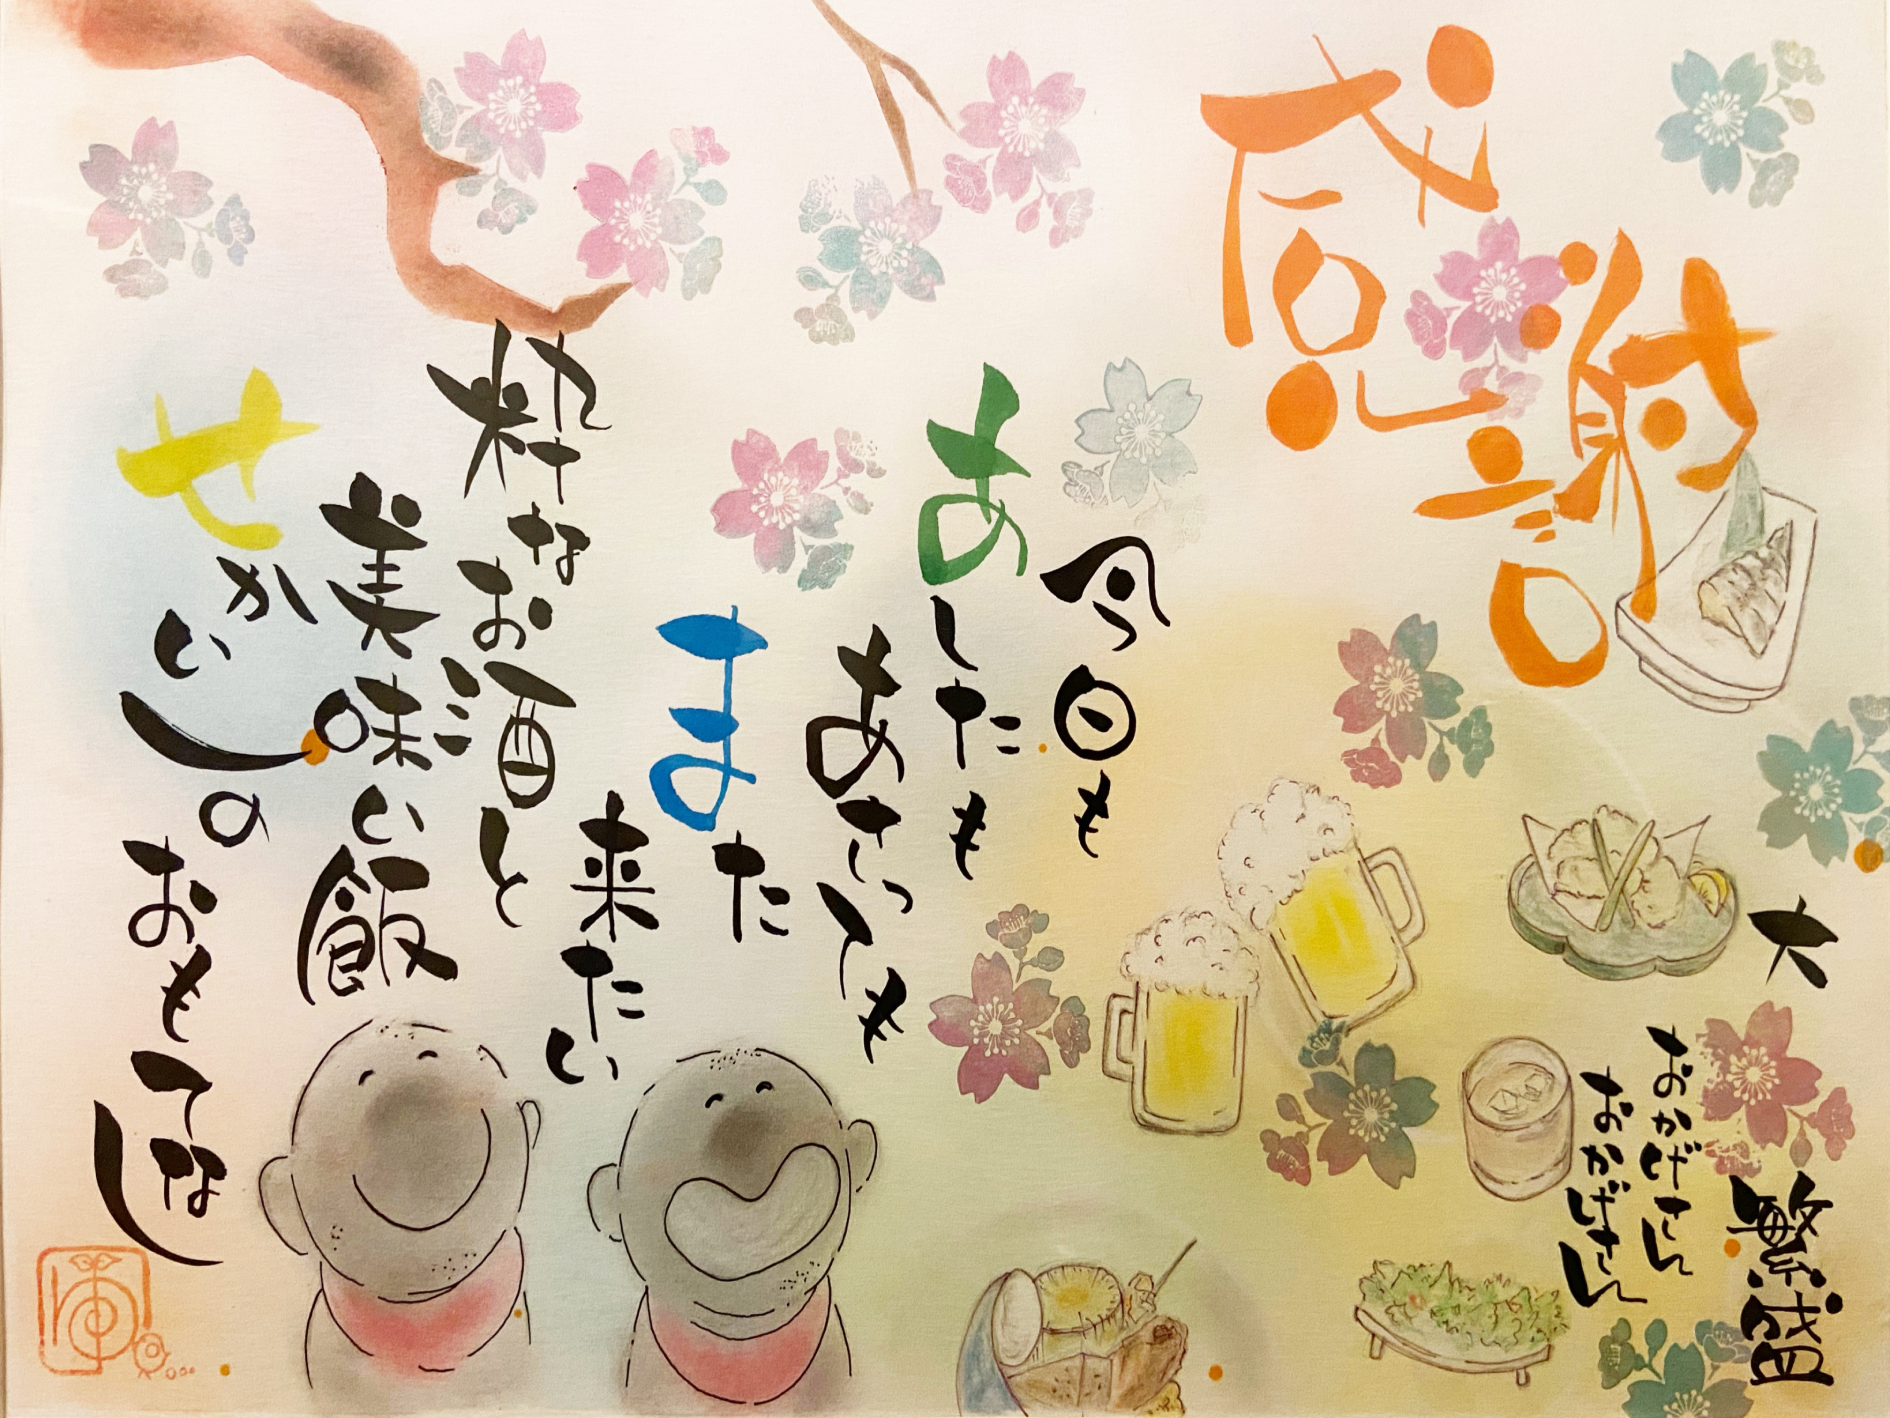 感謝
大繁盛
おかげさん
おかげさん
今日も
あしたも
あさっても
また
来たい
粋なお酒と
美味い飯
せかいしの
おもてなし
ゆ